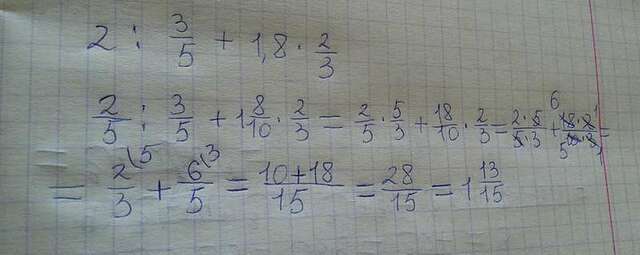 2 : 3/5 + 1,8 · 2/3
2/5 : 3/5 + 1 8/10 · 2/3 = 2/5 · 5/3 + 18/10 · 2/3 = 2·5/5·3 + 18·2/10·3 =
= 2/3 \5 + 6/5 \3 = 10+18/15 = 28/15 = 1 13/15